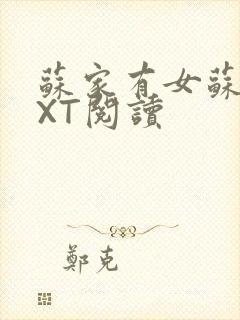 蘇家有女蘇
XT閱讀
鄭克